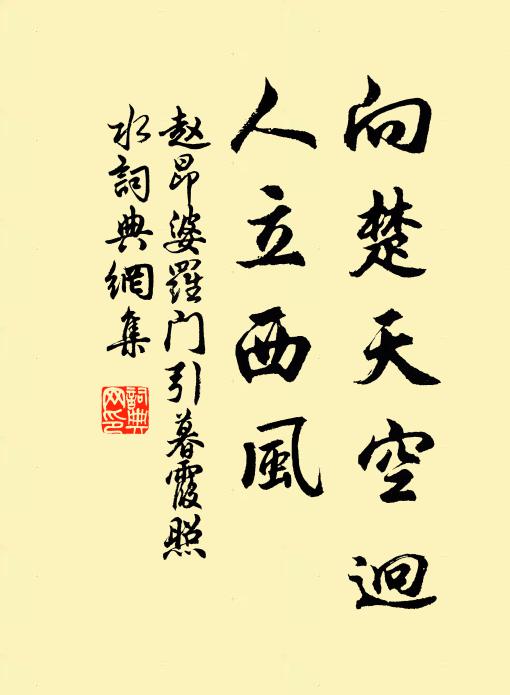 向楚天空迥
人立西風
赵昂婆羅门引暮霞照
水詞典網集
詞典
网印